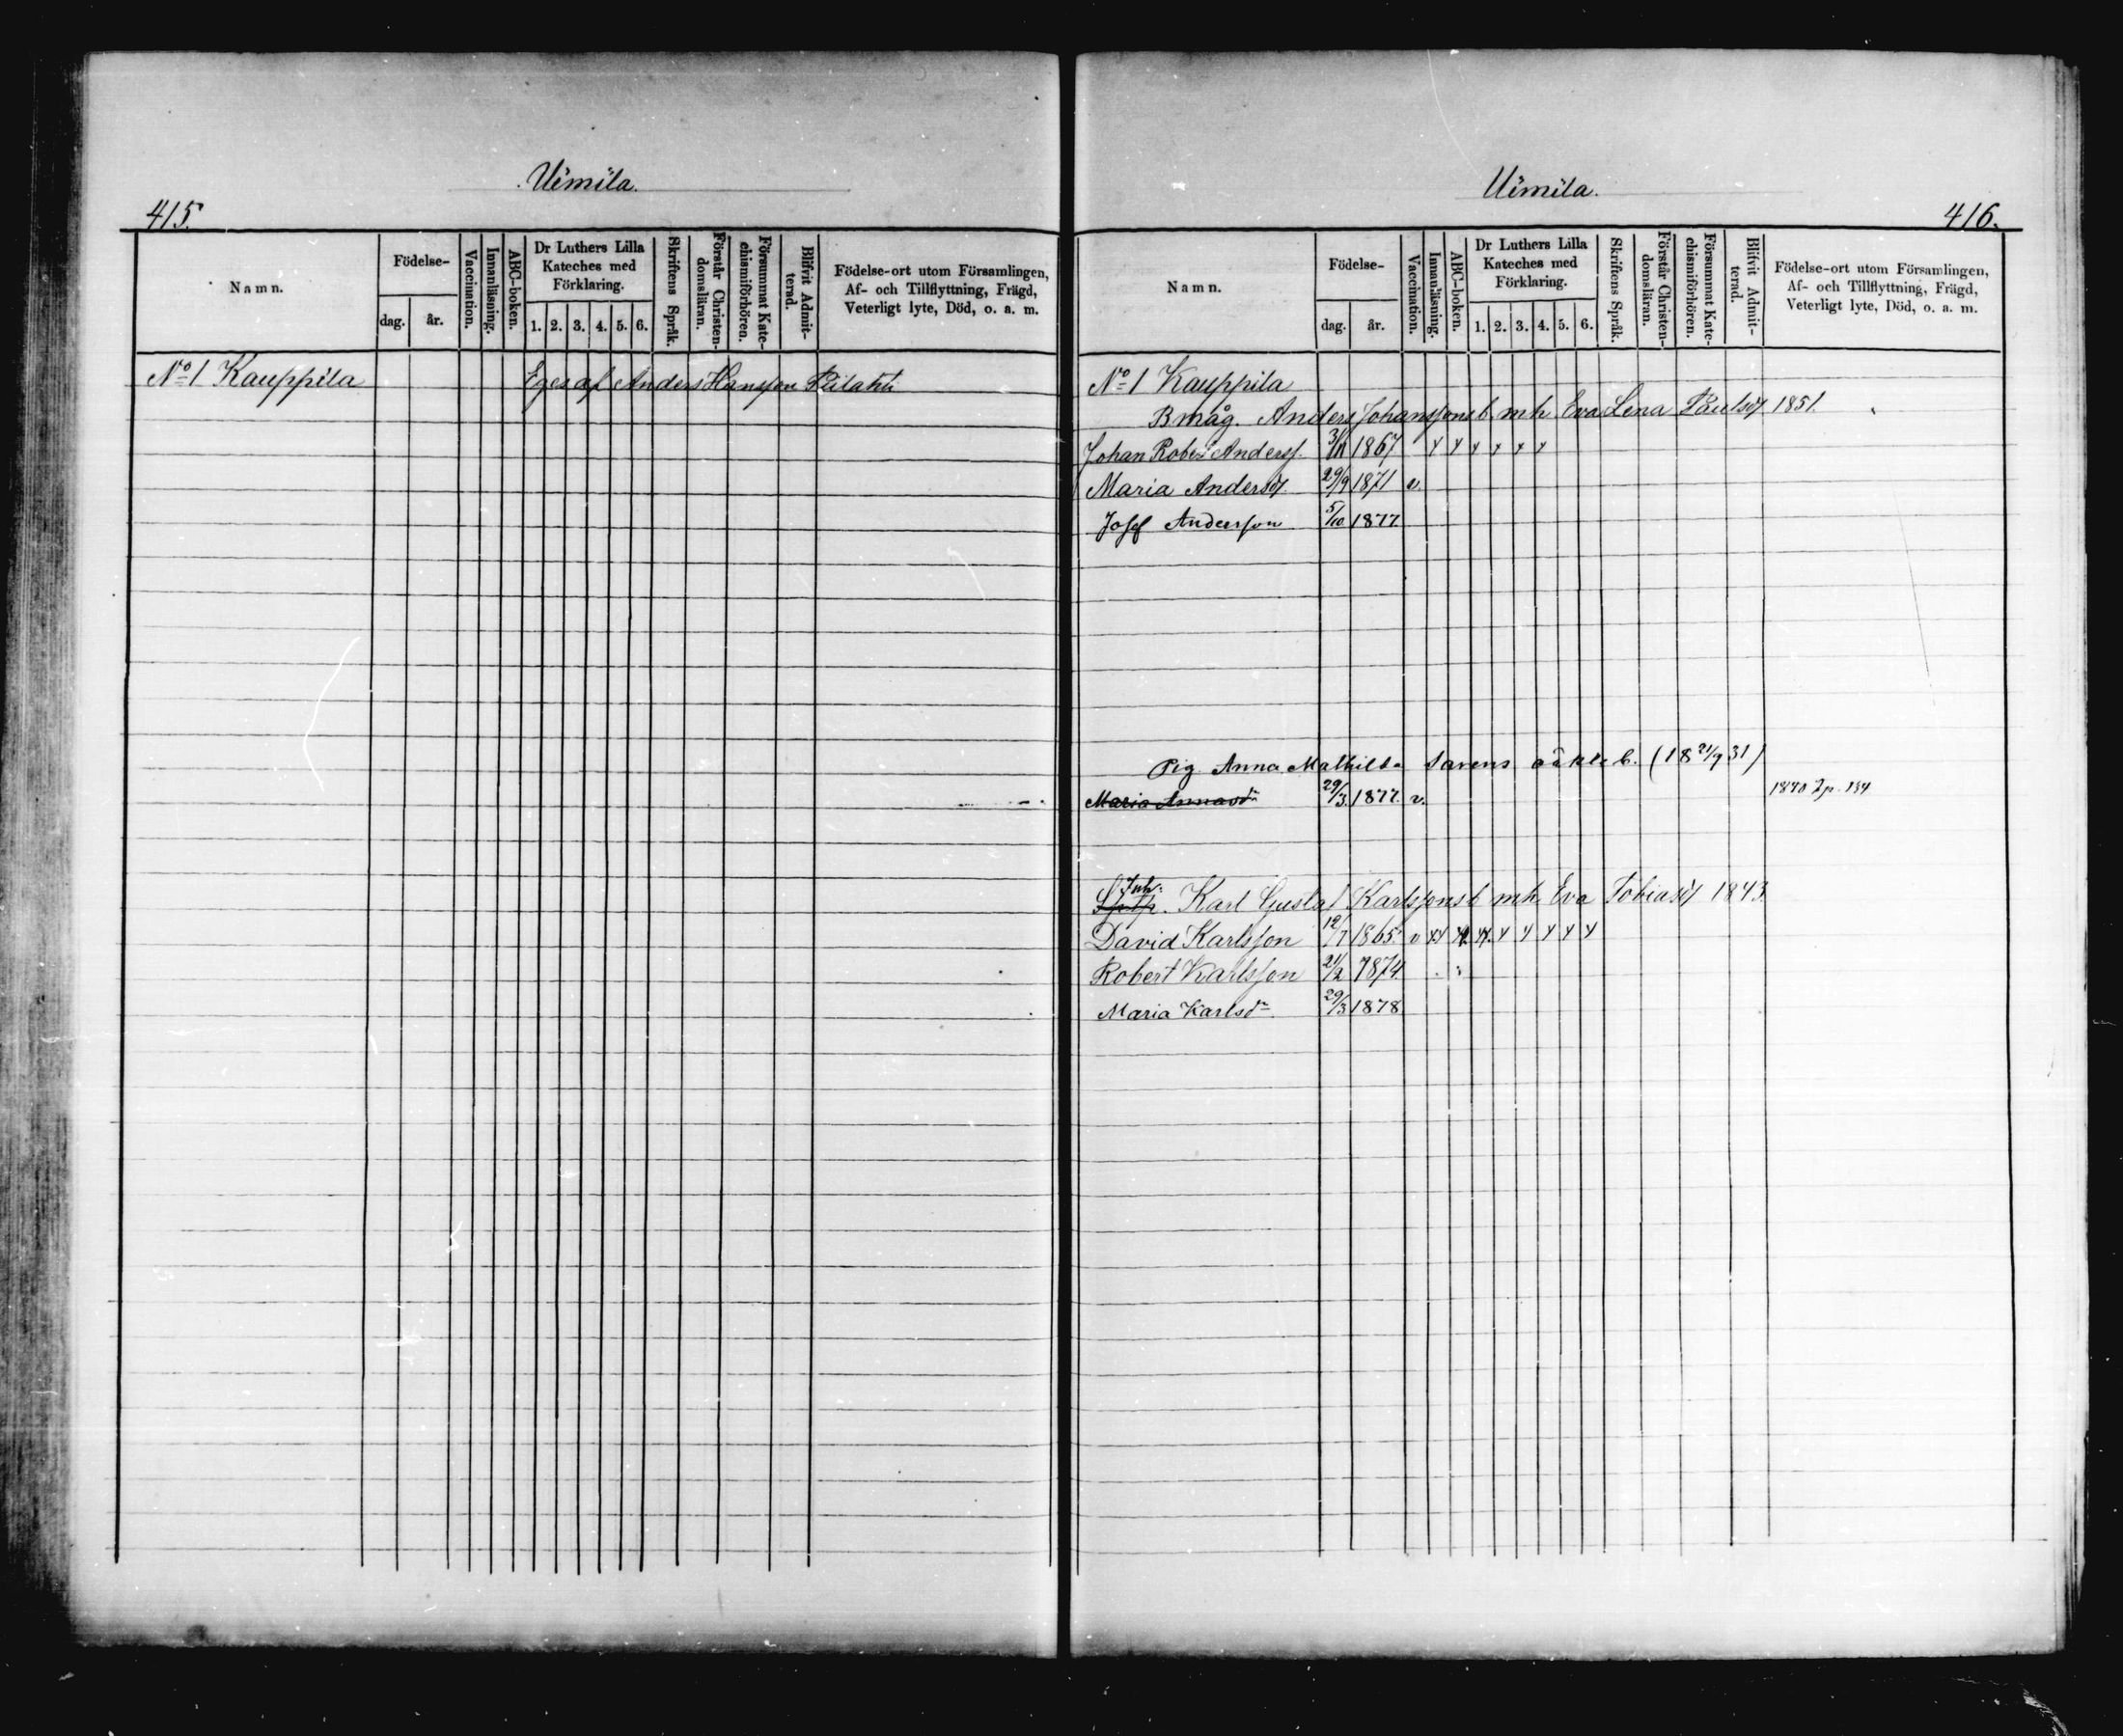 415.
Uimila.
Namn.
Födelse-
dag.
år.
Vaccination.
Innanläsning.
ABC-boken.
Dr Luthers Lilla
Kateches med
Förklaring.
1. 2. 3. 4. 5. 6.
Skriftens Språk.
Förstår Christen-
domsläran.
Försummat Kate-
chismiförhören.
Blifvit Admit-
terad.
Födelse-ort utom Församlingen,
Af- och Tillflyttning, Frägd,
Veterligt lyte, Död, o. a. m.
No 1 Kauppila Eges af Anders Hansson Pilahti
Uimila.
416.
Namn.
Födelse-
dag.
år.
Vaccination.
Innanläsning.
ABC-boken.
Dr Luthers Lilla
Kateches med
Förklaring.
1. 2. 3. 4. 5. 6.
Skriftens Språk.
Förstår Christen-
domsläran.
Försummat Kate-
chismiförhören.
Blifvit Admit-
terad.
Födelse-ort utom Församlingen,
Af- och Tillflyttning, Frägd,
Veterligt lyte, Död, o. a. m.
No 1 Kauppila
Bmåg. Anders Johanssons b. m h. Eva Lena Paulsd 1851.
Johan Robert Anderss. 1867
Maria Andersd. 29/9 1871 v.
Josef Andersson 5/10 1877.
Pig. Anna Mathilda oäkta b. (18 21/9 31)
Maria Annasdr 29/3. 1877. v. 1870 p. 134
Inh.
Karl Gustaf Karlssons b m h. Eva Tobiasd 1843.
David Karlsson 12/7 1865. v
Robert Karlsson 21/2 1874.
Maria Karlsdr 29/3 1878